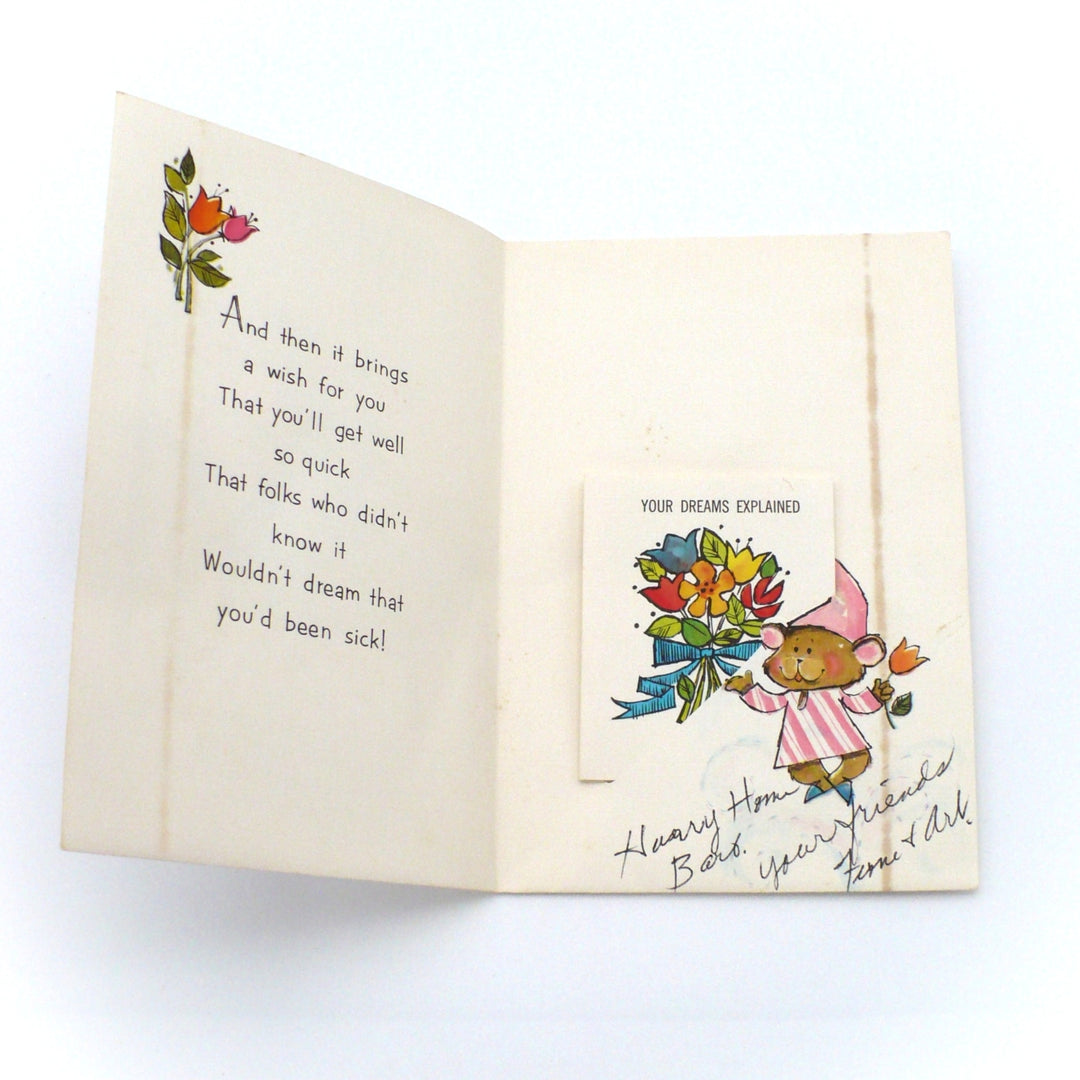 And then it brings
a wish for you
That you'll get well
so quick
That folks who didn't
know it
Wouldn't dream that
you'd been sick!
YOUR DREAMS EXPLAINED
Home
Barb.
Your friends
& Art.